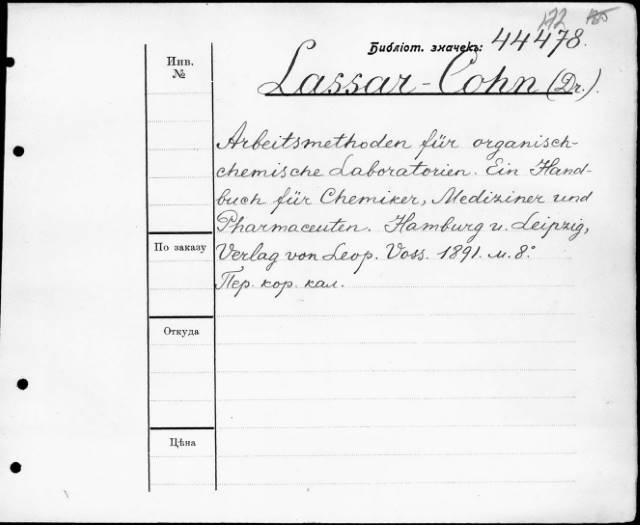 172
Библіот. значекъ: 44478.
Инв.
№
Lassar-Cohn (Dr.).
Arbeitsmethoden für organisch-
chemische Laboratorien. Ein Hand-
buch für Chemiker, Mediziner und
Pharmaceuten. Hamburg u. Leipzig,
По заказу
Verlag von Leop. Voss. 1891. м. 8º.
Пер. кор. кал.
Откуда
Цѣна